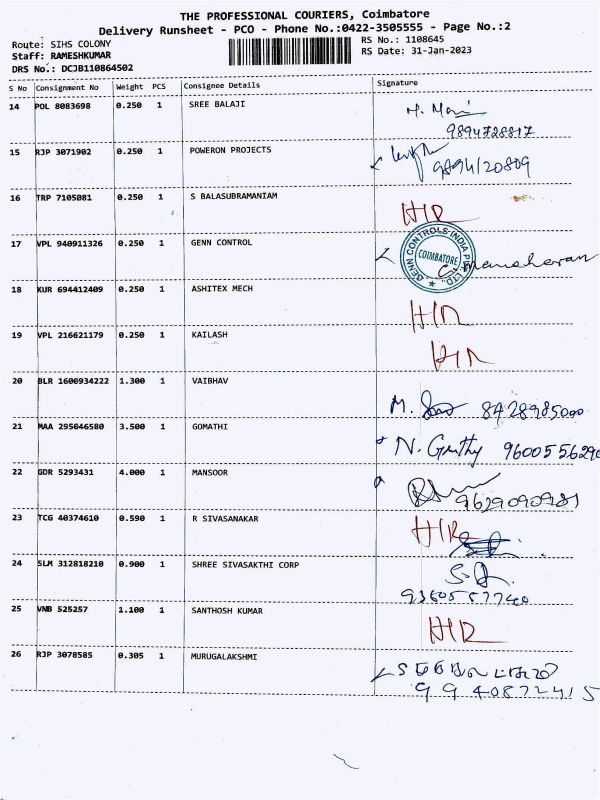 THE PROFESSIONAL COURIERS, Coimbatore
Delivery Runsheet - PCO - Phone No.:0422-3505555 - Page No.:2
Route: SIHS COLONY RS No.: 1108645
Staff: RAMESHKUMAR RS Date: 31-Jan-2023
DRS No.: DCJB110864502
S No Consignment No Weight PCS Consignee Details Signature
14 POL 8083698 0.250 1 SREE BALAJI
9894728817
15 RJP 3071902 0.250 1 POWERON PROJECTS
9894120809
16 TRP 7105081 0.250 1 S BALASUBRAMANIAM
17 VPL 940911326 0.250 1 GENN CONTROL GENN CONTROLS INDIA COIMBATORE C. Manoharan
18 KUR 694412409 0.250 1 ASHITEX MECH
19 VPL 216621179 0.250 1 KAILASH
20 BLR 1600934222 1.300 1 VAIBHAV
M. 8428985000
21 MAA 295046580 3.500 1 GOMATHI
N. 9600556290
22 GDR 5293431 4.000 1 MANSOOR
9629090981
23 TCG 40374610 0.590 1 R SIVASANAKAR
24 SLM 312818210 0.900 1 SHREE SIVASAKTHI CORP
9360557740
25 VNB 525257 1.100 1 SANTHOSH KUMAR
26 RJP 3078585 0.305 1 MURUGALAKSHMI
9940872415